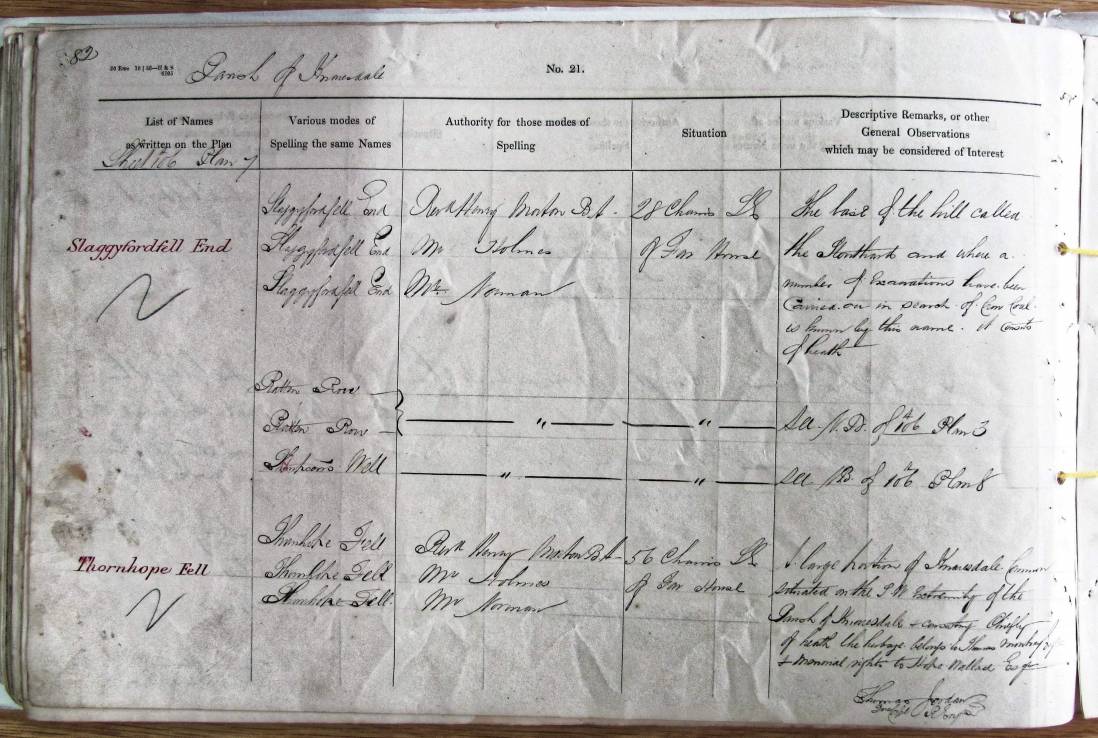 82
Parish of Knaresdale
No. 21.
List of Names
as written on the Plan
Sheet 106 Plan 7
Various modes of
Spelling the same Names
Authority for those modes of
Spelling
Situation
Descriptive Remarks, or other
General Observations
which may be considered of Interest
Slaggyfordfell End
Slaggyfordfell End
Slaggyfordfell End
Slaggyfordfell End
Revd Henry Morton B.A.
Mr Holmes
Mr Norman
28 Chains
of Far House
The base of the hill called
the and where a
number of Excavations have been
Carried on in search of Crow Coal
is known by this name. it consists
of heath
Ratton Row
Ratton Row
" "
See N.B. of 106 Plan 3
Well
" "
See N.B. of 106 Plan 8
Thornhope Fell
Thornhope Fell
Thornhope Fell
Thornhope Fell.
Revd Henry Morton B.A.
Mr Holmes
Mr Norman
56 Chains
of Far House
A large portion of Knaresdale Common
situated on the S.W. Extremity of the
Parish of Knaresdale & consists Chiefly
of heath the herbage belongs to Thomas
& Manorial rights to Hope Wallace Esqr
Thomas Jordan